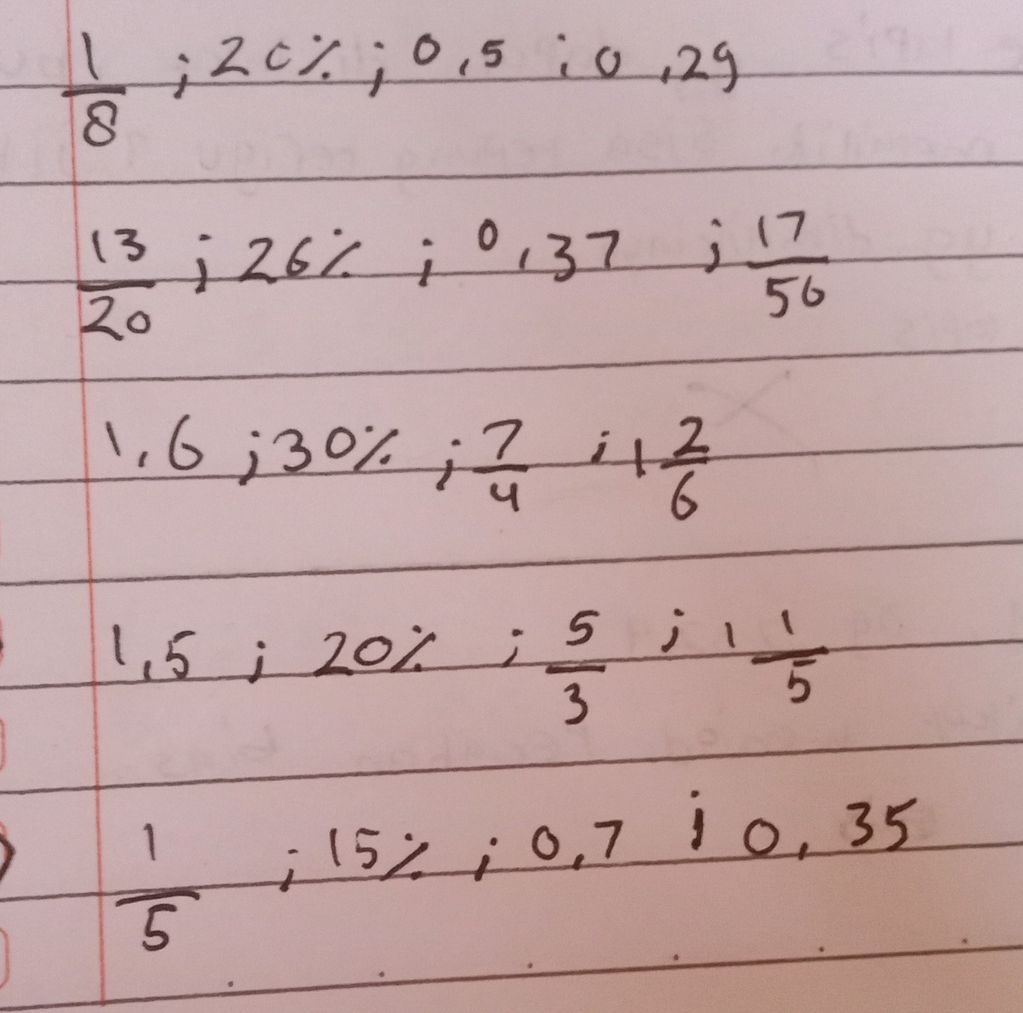 1/8 ; 20% ; 0,5 ; 0,29
13/20 ; 26% ; 0,37 ; 17/50
1,6 ; 30% ; 7/4 ; 1 2/6
1,5 ; 20% ; 5/3 ; 1 1/5
1/5 ; 15% ; 0,7 ; 0,35